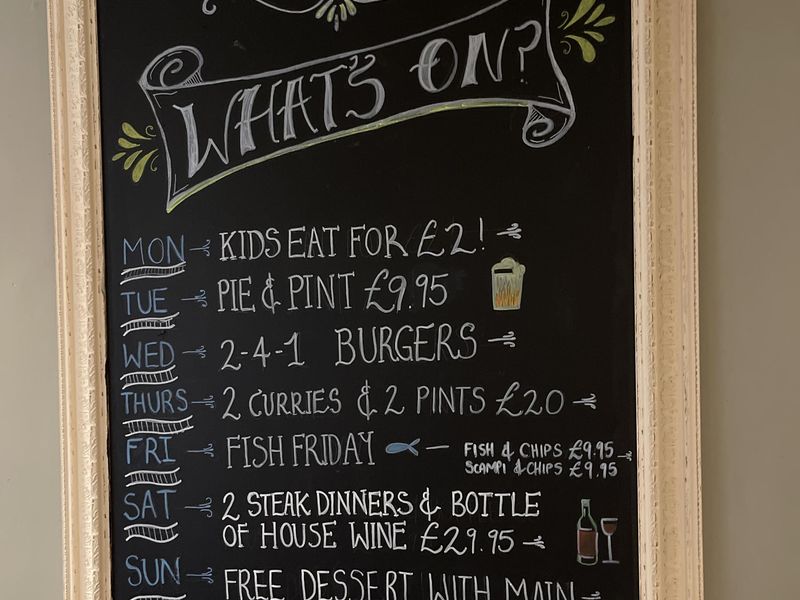 WHAT'S ON?
MON - KIDS EAT FOR £2!
TUE - PIE & PINT £9.95
WED - 2-4-1 BURGERS
THURS - 2 CURRIES & 2 PINTS £20
FRI - FISH FRIDAY - FISH & CHIPS £9.95
SCAMPI & CHIPS £9.95
SAT - 2 STEAK DINNERS & BOTTLE
OF HOUSE WINE £29.95
SUN - FREE DESSERT WITH MAIN